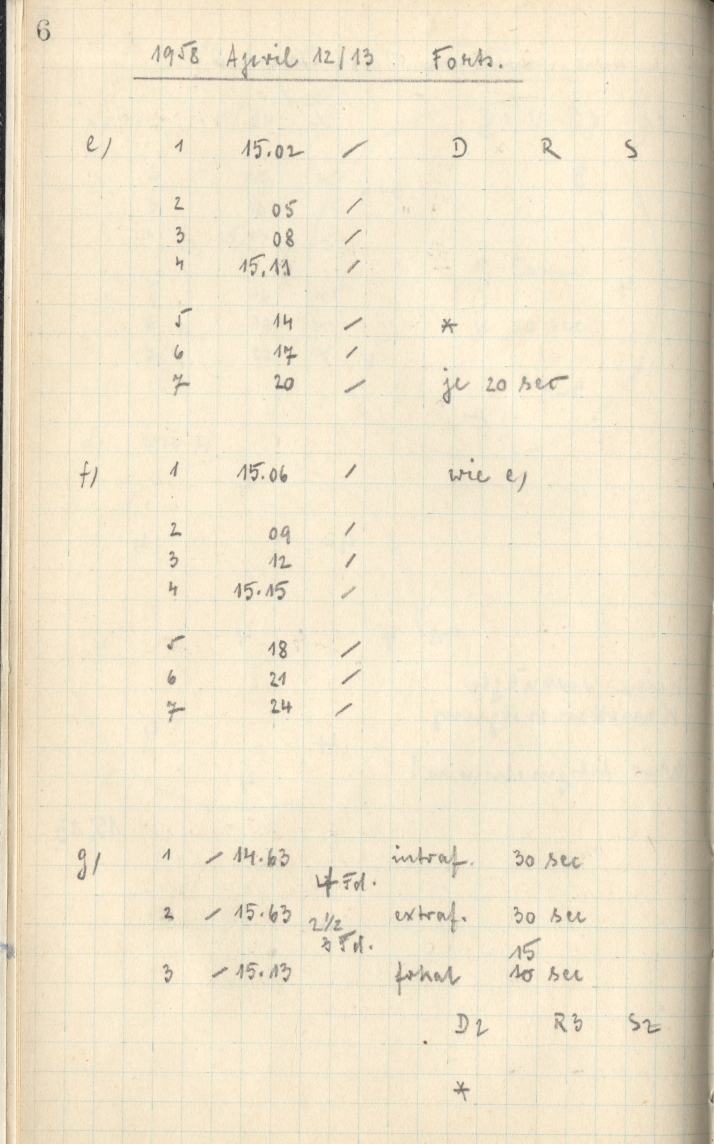 6
1958 April 12/13 Forts.
e) 1 15.02 / D R S
2 05 /
3 08 /
4 15.11 /
5 14 / *
6 17 /
7 20 / je 20 sec
f) 1 15.06 / wie e)
2 09 /
3 12 /
4 15.15 /
5 18 /
6 21 /
7 24 /
g) 1 / 14.63 intraf. 30 sec
4 Fd.
2 / 15.63 2 1/2 extraf. 30 sec
3 Fd. 15
3 / 15.13 fokal 10 sec
D2 R3 S2
*